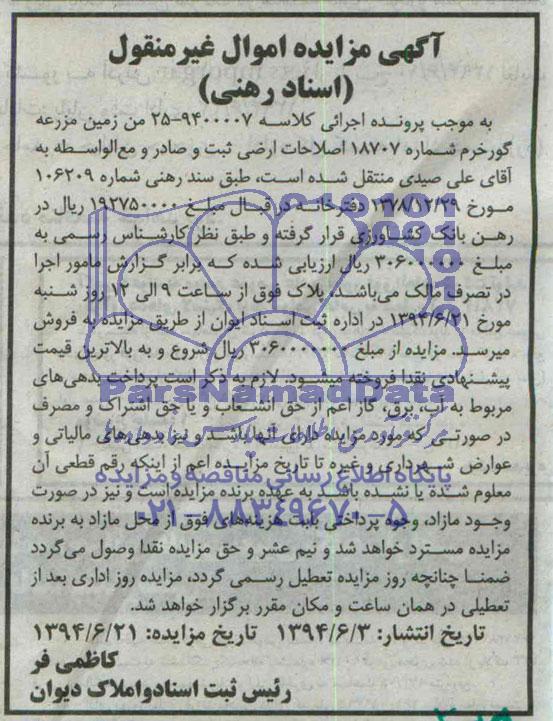 آگهی مزایده اموال غیرمنقول
(اسناد رهنی)
به موجب پرونده اجرائی کلاسه ۹۴۰۰۰۰۷-۲۵ من زمین مزرعه
گورخرم شماره ۱۸۷۰۷ اصلاحات ارضی ثبت و صادر و مع‌الواسطه به
آقای علی صیدی منتقل شده است، طبق سند رهنی شماره ۱۰۶۲۰۹
مورخ ۱۳۷۸/۱۲/۲۹ دفترخانه در قبال مبلغ ۱۹۲۷۵۰۰۰۰ ریال در
رهن بانک کشاورزی قرار گرفته و طبق نظر کارشناس رسمی به
مبلغ ۳۰۶۰۰۰۰۰۰۰ ریال ارزیابی شده که برابر گزارش مامور اجرا
در تصرف مالک می‌باشد، پلاک فوق از ساعت ۹ الی ۱۲ روز شنبه
مورخ ۱۳۹۴/۶/۲۱ در اداره ثبت اسناد ایوان از طریق مزایده به فروش
میرسد. مزایده از مبلغ ۳۰۶۰۰۰۰۰۰۰ ریال شروع و به بالاترین قیمت
پیشنهادی نقدا فروخته میشود. لازم به ذکر است پرداخت بدهی‌های
مربوط به آب، برق، گاز اعم از حق انشعاب و یا حق اشتراک و مصرف
در صورتی که مورد مزایده دارای آنها باشد و نیز بدهی‌های مالیاتی و
عوارض شهرداری و غیره تا تاریخ مزایده اعم از اینکه رقم قطعی آن
معلوم شده یا نشده باشد به عهده برنده مزایده است و نیز در صورت
وجود مازاد، وجوه پرداختی بابت هزینه‌های فوق از محل مازاد به برنده
مزایده مسترد خواهد شد و نیم عشر و حق مزایده نقدا وصول می‌گردد
ضمنا چنانچه روز مزایده تعطیل رسمی گردد، مزایده روز اداری بعد از
تعطیلی در همان ساعت و مکان مقرر برگزار خواهد شد.
تاریخ انتشار: ۱۳۹۴/۶/۳ تاریخ مزایده: ۱۳۹۴/۶/۲۱
کاظمی فر
رئیس ثبت اسناد و املاک دیوان
ParsNamadData
پایگاه اطلاع رسانی مناقصه و مزایده
۰۲۱-۸۸۳۴۹۶۷۰-۵